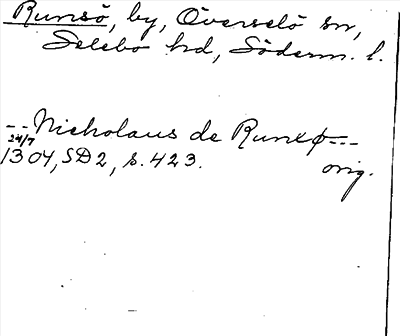 Runsö, by, Överselö sn,
Selebo hd, Söderm. l.
-- Nicholaus de Runxø ---
24/7
1304, SD2, s. 423. orig.